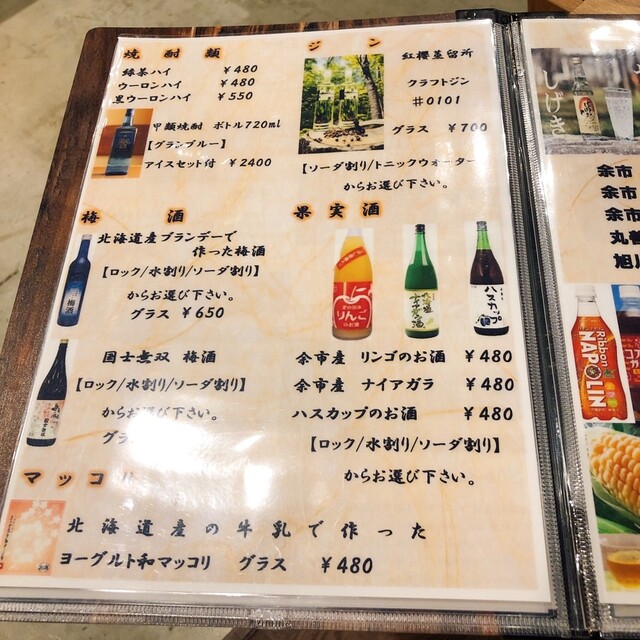 焼酎類
緑茶ハイ ¥480
ウーロンハイ ¥480
黒ウーロンハイ ¥550
甲類焼酎 ボトル720ml
【グランブルー】
アイスセット付 ¥2400
ジン
紅櫻蒸留所
クラフトジン
#0101
グラス ¥700
【ソーダ割り/トニックウォーター
からお選び下さい。
梅酒
北海道産ブランデーで
作った梅酒
【ロック/水割り/ソーダ割り】
からお選び下さい。
グラス ¥650
国士無双 梅酒
【ロック/水割り/ソーダ割り】
からお選び下さい。
グラ
果実酒
りんご
のお酒
ハスカップ
梅酒
余市産 リンゴのお酒 ¥480
余市産 ナイアガラ ¥480
ハスカップのお酒 ¥480
【ロック/水割り/ソーダ割り】
からお選び下さい。
マッコリ
北海道産の牛乳で作った
ヨーグルト和マッコリ グラス ¥480
しげき
余市
余市
余市
丸
旭川
Ribbon
NAPOLIN